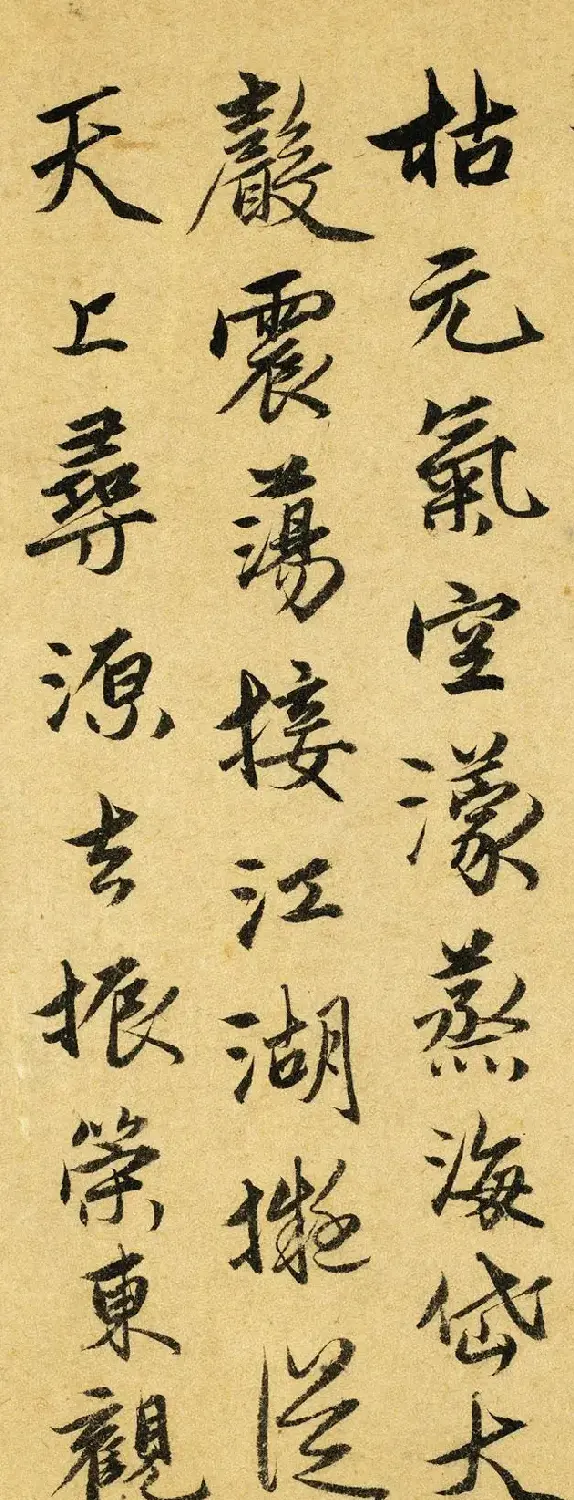 枯元氣空濛蒸海岱大
聲震蕩接江湖擬從
天上尋源去振策東觀